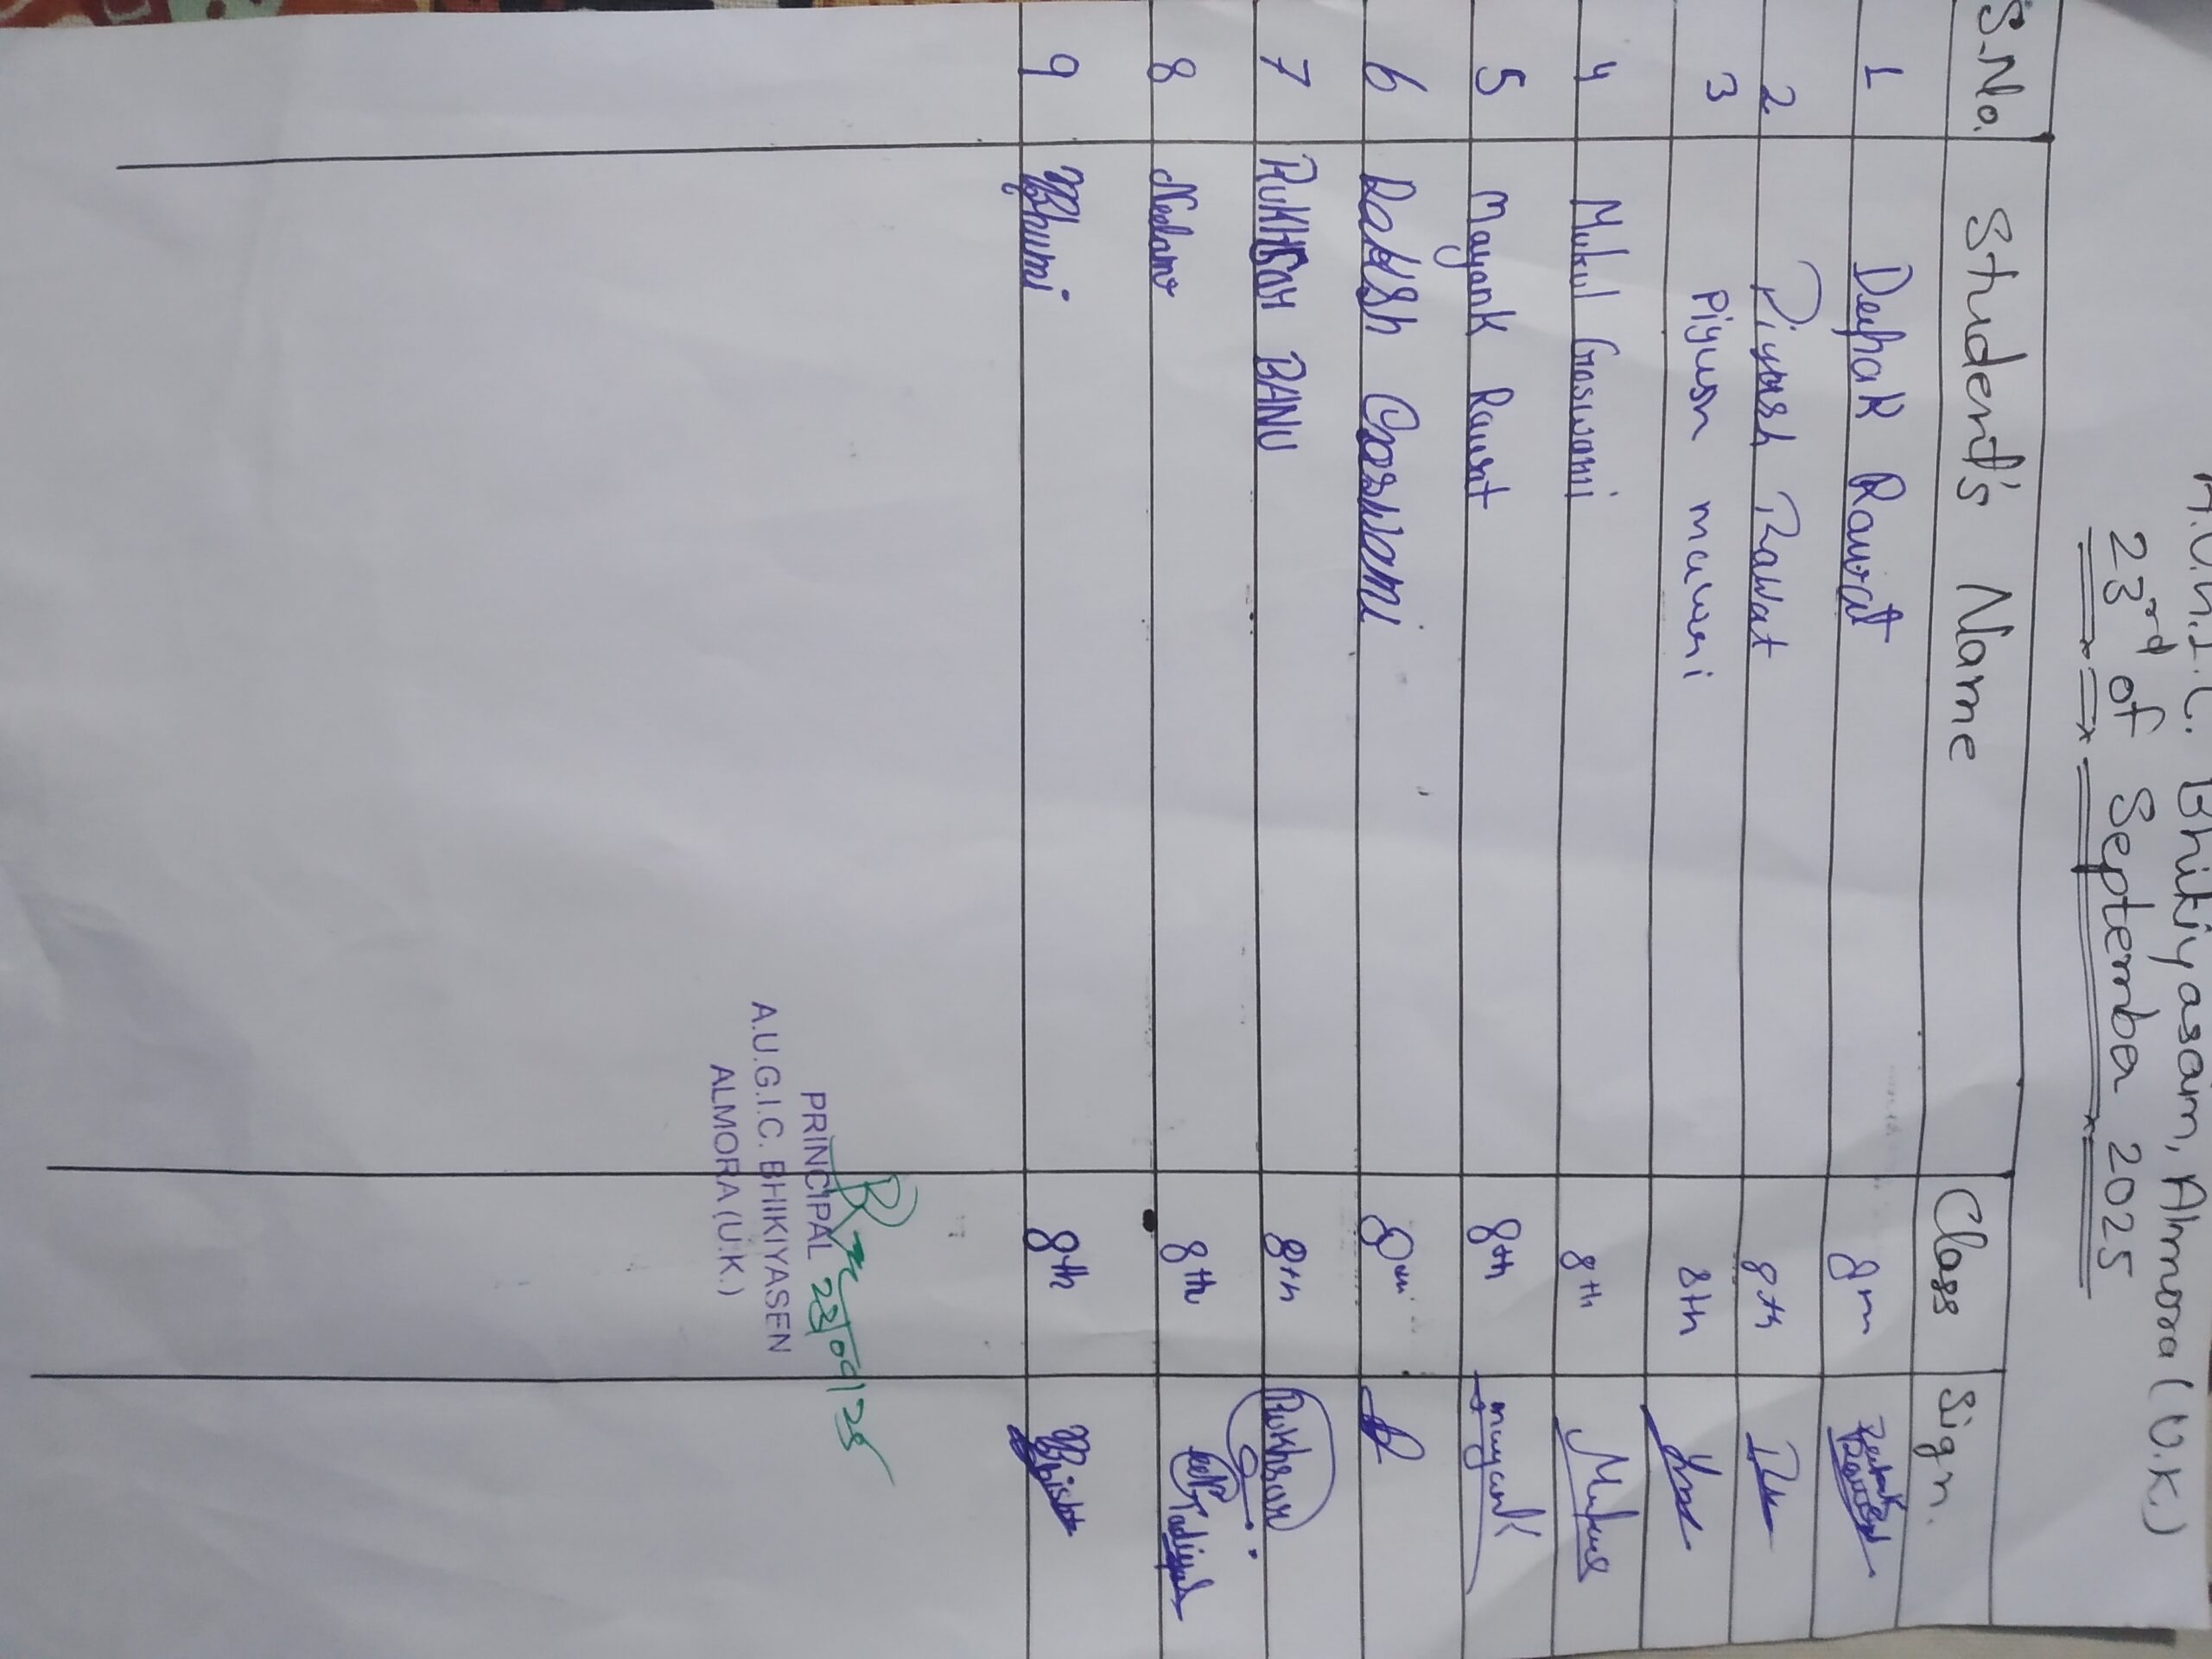 A.U.G.I.C. Bhikiyasain, Almora (U.K.)
23rd of September 2025
S.No. Student's Name Class Sign.
1 Deepak Rawat 8th Deepak Rawat
2 Piyush Rawat 8th
3 Piyush mawri 8th
4 Mukul Goswami 8th Mukul
5 Mayank Rawat 8th mayank
6 Daksh Goswami 8th
7 RUKHSAR BANU 8th Rukhsar
8 Neelam 8th
9 Bhumi 8th Bhisht
23/09/25
PRINCIPAL
A.U.G.I.C. BHIKIYASEN
ALMORA (U.K.)